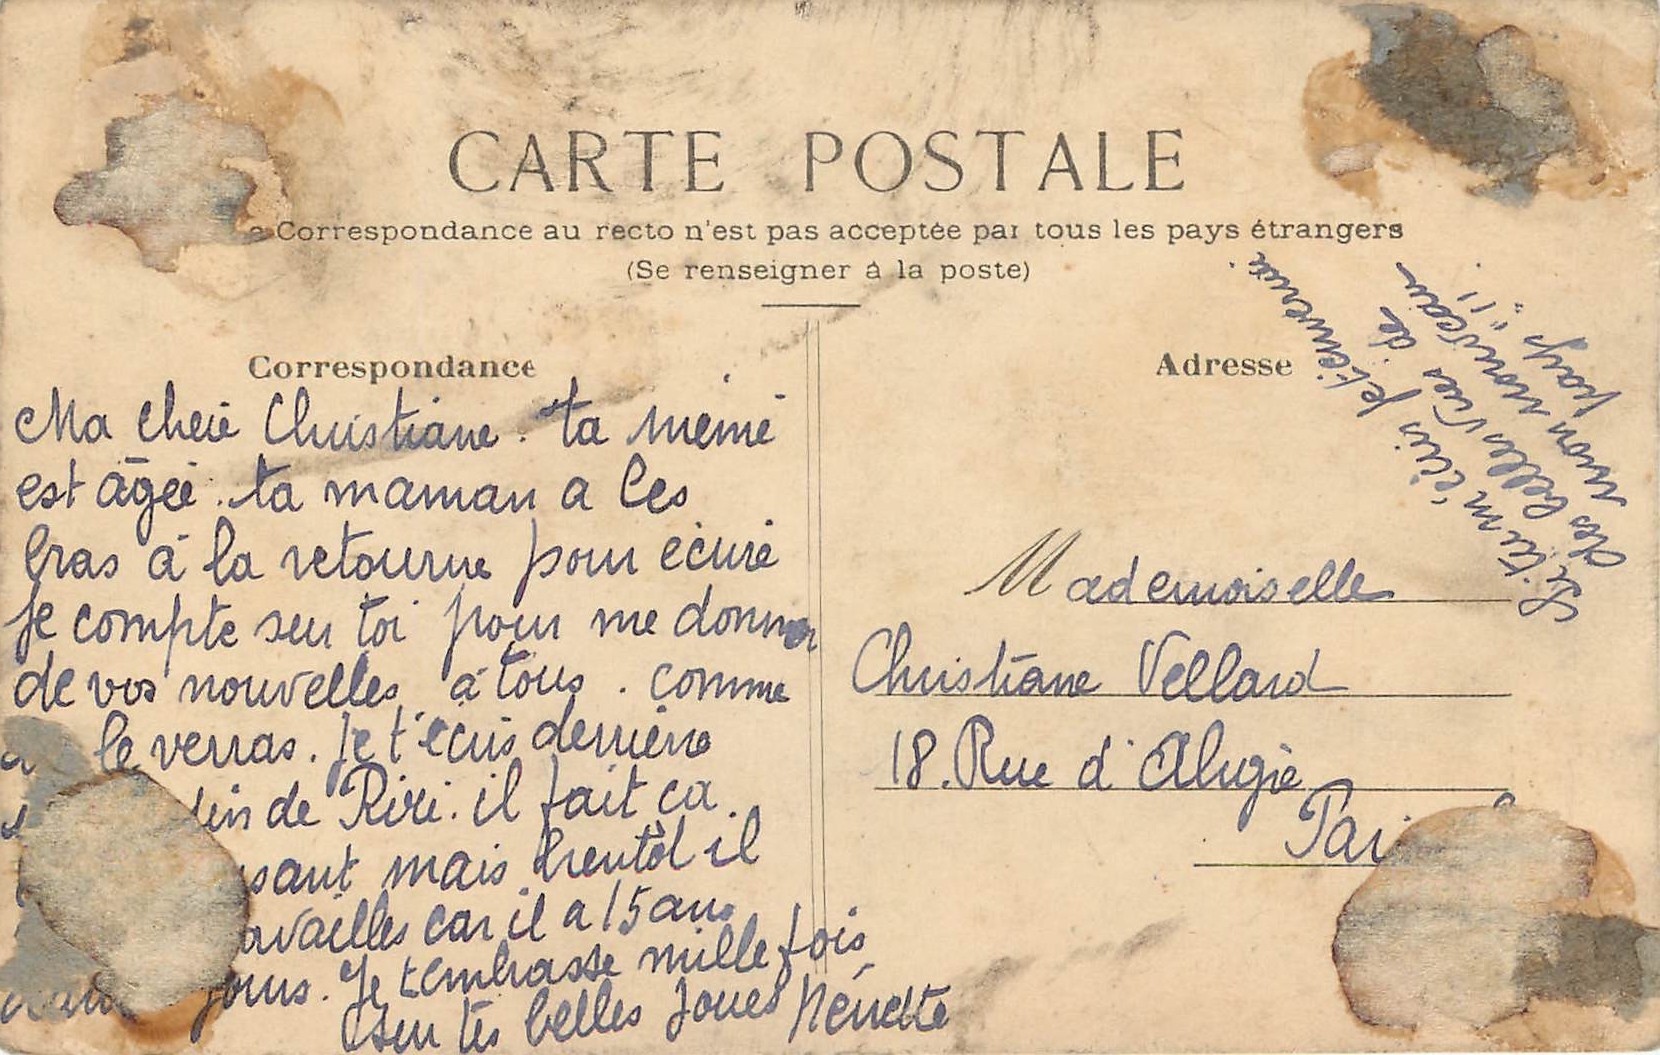 CARTE POSTALE
Correspondance au recto n'est pas acceptée par tous les pays étrangers
(Se renseigner à la poste)
Correspondance
Ma chère Christiane. ta mémé
est âgée. ta maman a les
bras à la retourne pour écrire
Je compte sur toi pour me donner
de vos nouvelles à tous. comme
le verras. Je t'écris derrière
de Riri. il fait ça
mais bientôt il
car il a 15 ans
jours. Je t'embrasse mille fois
sur tes belles joues Nénette
Adresse
Mademoiselle
Christiane Vellard
18. Rue d'Alégie
Si tu m'écris je t'enverrai
des belles vues de
mon nouveau
pays"!!